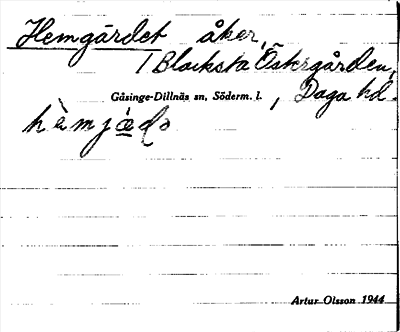 Hemgärdet åker,
/ Blacksta Östergården,
Gåsinge-Dillnäs sn, Söderm. l. , Daga hd.
Artur Olsson 1944